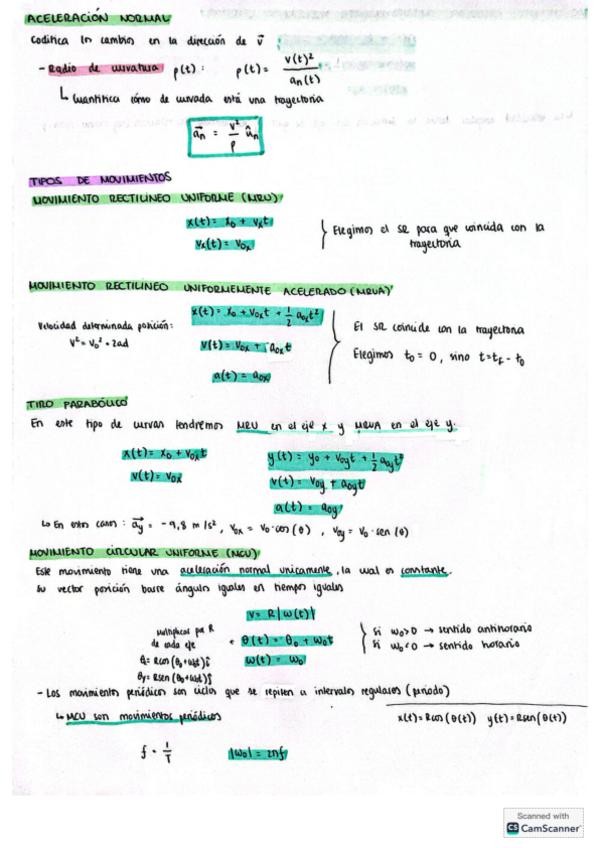 ACELERACIÓN NORMAL
Codifica los cambios en la dirección de v⃗
- Radio de curvatura ρ(t): ρ(t) = v(t)² / aₙ(t)
↳ Cuantifica cómo de curvada está una trayectoria
a⃗ₙ = v²/ρ ûₙ
TIPOS DE MOVIMIENTOS
MOVIMIENTO RECTILÍNEO UNIFORME (MRU)
x(t) = x₀ + vₓt
vₓ(t) = v₀ₓ
} Elegimos el SR para que coincida con la
trayectoria
MOVIMIENTO RECTILÍNEO UNIFORMEMENTE ACELERADO (MRUA)
x(t) = x₀ + v₀ₓt + 1/2 a₀ₓt²
Velocidad determinada posición:
v² = v₀² + 2ad
v(t) = v₀ₓ + a₀ₓt
a(t) = a₀ₓ
} El SR coincide con la trayectoria
Elegimos t₀ = 0, sino t = t_f - t₀
TIRO PARABÓLICO
En este tipo de curvas tendremos MRU en el eje x y MRUA en el eje y.
x(t) = x₀ + v₀ₓt y(t) = y₀ + v₀yt + 1/2 a₀yt²
v(t) = v₀ₓ v(t) = v₀y + a₀yt
a(t) = a₀y
↳ En estos casos: a⃗y = -9,8 m/s², v₀ₓ = v₀·cos(θ), v₀y = v₀·sen(θ)
MOVIMIENTO CIRCULAR UNIFORME (MCU)
Este movimiento tiene una aceleración normal unicamente, la cual es constante.
Su vector posición barre ángulos iguales en tiempos iguales
v = R|ω(t)|
Multiplicas por R
de cada eje
θ(t) = θ₀ + ω₀t
ω(t) = ω₀
} Si ω₀>0 → sentido antihorario
Si ω₀<0 → sentido horario
θₓ = Rcos(θ₀+ω₀t)î
θy = Rsen(θ₀+ω₀t)ĵ
- Los movimientos periódicos son ciclos que se repiten a intervalos regulares (periodo)
↳ MCU son movimientos periódicos
x(t) = Rcos(θ(t)) y(t) = Rsen(θ(t))
f = 1/T |ω₀| = 2πf
Scanned with
CS CamScanner